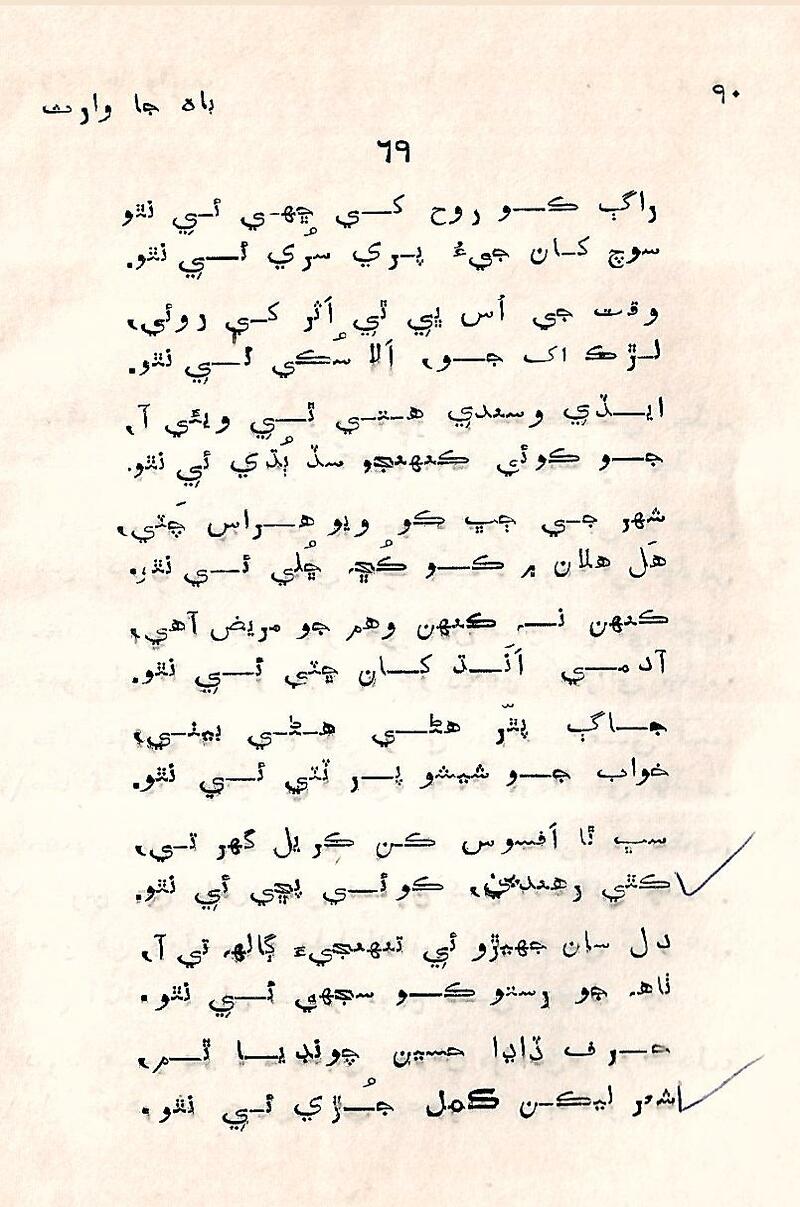 ٩٠
باهه جا وارث
٦٩
راڳ ڪو روح کي ڇهي ئي نٿو
سوچ کان جيءُ پري سُري ئي نٿو.
وقت جي اُس ڀي ٿي اَثر کي روئي،
لڙڪ اک جو، اَلا سُڪي ئي نٿو.
ايڏي وسعدي هتي ٿي ويئي آ،
جو ڪوئي ڪنهنجو سڏ ٻُڌي ئي نٿو.
شهر جي چپ کو ويو هراس چَٽي،
هَل هلان ۾ ڪو ڪُڇ ڇُلي ئي نٿو.
ڪنهن نه ڪنهن وهم جو مريض آهي،
آدمي اَنَڌ کان ڇٽي ئي نٿو.
جاڳ پٿّر هڻي هڻي بيٺي،
خواب جو شيشو پر ٽٽي ئي نٿو.
سڀ ٿا اَفسوس ڪن ڪريل گهر تي،
ڪٿي رهندين، ڪوئي پڇي ئي نٿو.
دل سان جهيڙو ئي تنهنجيءَ ڳالهه تي آ،
ٺاهه جو رستو ڪو سجهي ئي نٿو.
حرف ڏاڍا حسين چونڊيا ٿم،
شعر ليڪن مڪمل جُڙي ئي نٿو.